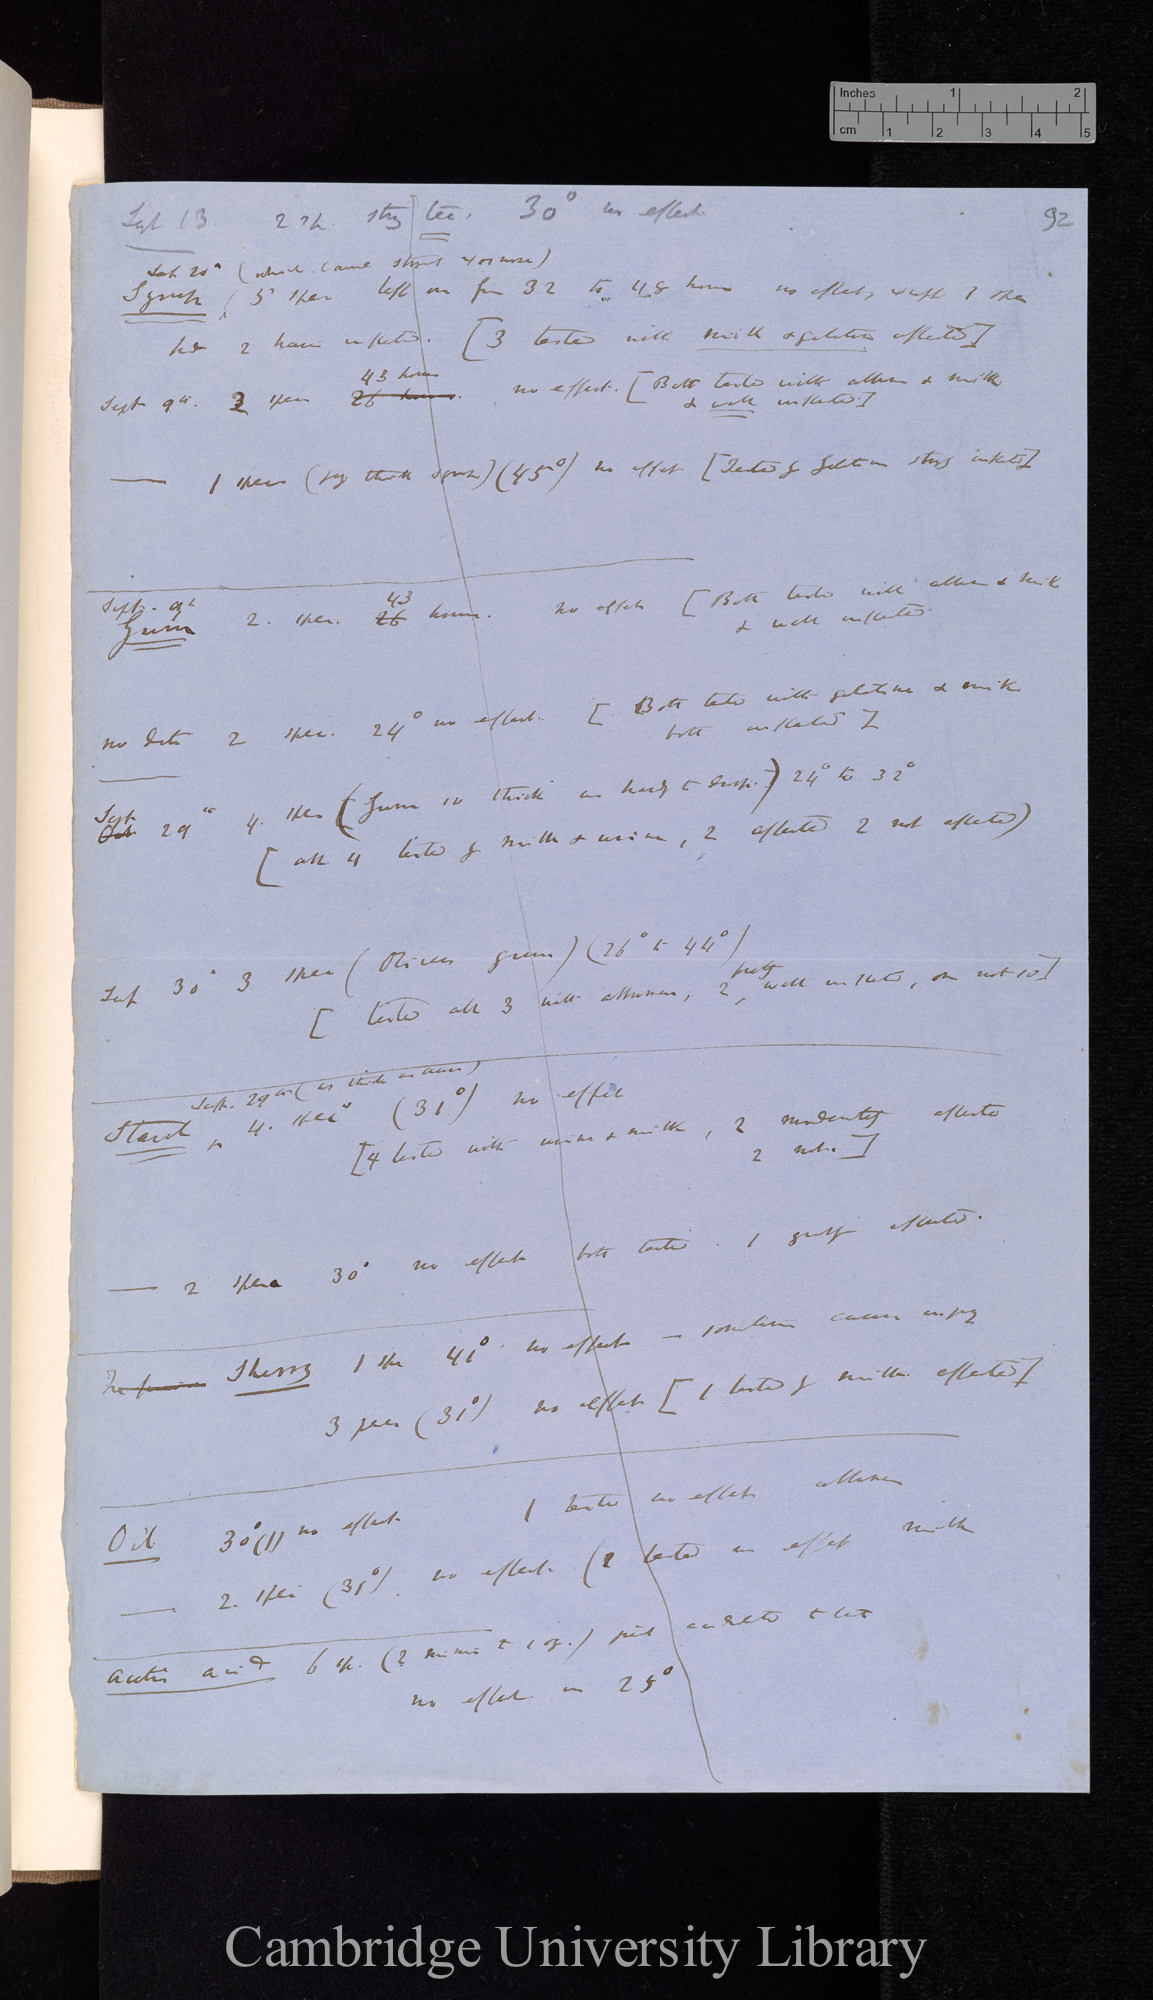 Inches 1 2
cm 1 2 3 4 5
92
Sept 13 2 sp. strong tea. 30° no effect
Sept 20th (which came strong
Syrup 5 spec left on for 32 to 48 hours no effect, except 1 spec
had 2 hairs inflected. [3 tested with milk & gelatine affected]
43 hours
Sept 9th. 2 spec 26 hours. no effect. [Both tested with album & milk
& well inflected]
— 1 spec (very thick syrup) (45°) no effect [Tested by gelatine strong inflected]
Sept. 9th
43
Gum 2. spec. 26 hours. no effect [Both tested with album & milk
& well inflected
no date 2 spec. 24° no effect. [Both tested with gelatine & milk
both inflected]
Sept
Oct 29th 4. spec (Gum so thick as hardly to drop.) 24° to 32°
[all 4 tested by milk & urine, 2 affected 2 not affected)
Sept 30° 3 spec (Olivers gum) (26° to 44°)
pretty
[tested all 3 with albumen, 2 well inflected, one not so]
Sept. 29th (as thick as
Starch 4. spec (31°) no effect
[4 tested with urine & milk, 2 moderately affected
2 not.]
— 2 spec 30° no effect both tested. 1 greatly affected.
Sherry 1 spe 41° no effect — sometimes causes injury
3 spec (31°) no effect [1 tested by milk. affected]
Oil 30°(1) no effect 1 tested no effect albumen
— 2. spec (31°). no effect. (2 tested no effect milk
acetic acid 6 sp. (2 minims to 1 oz.) just acidulated to
no effect in 25°
Cambridge University Library